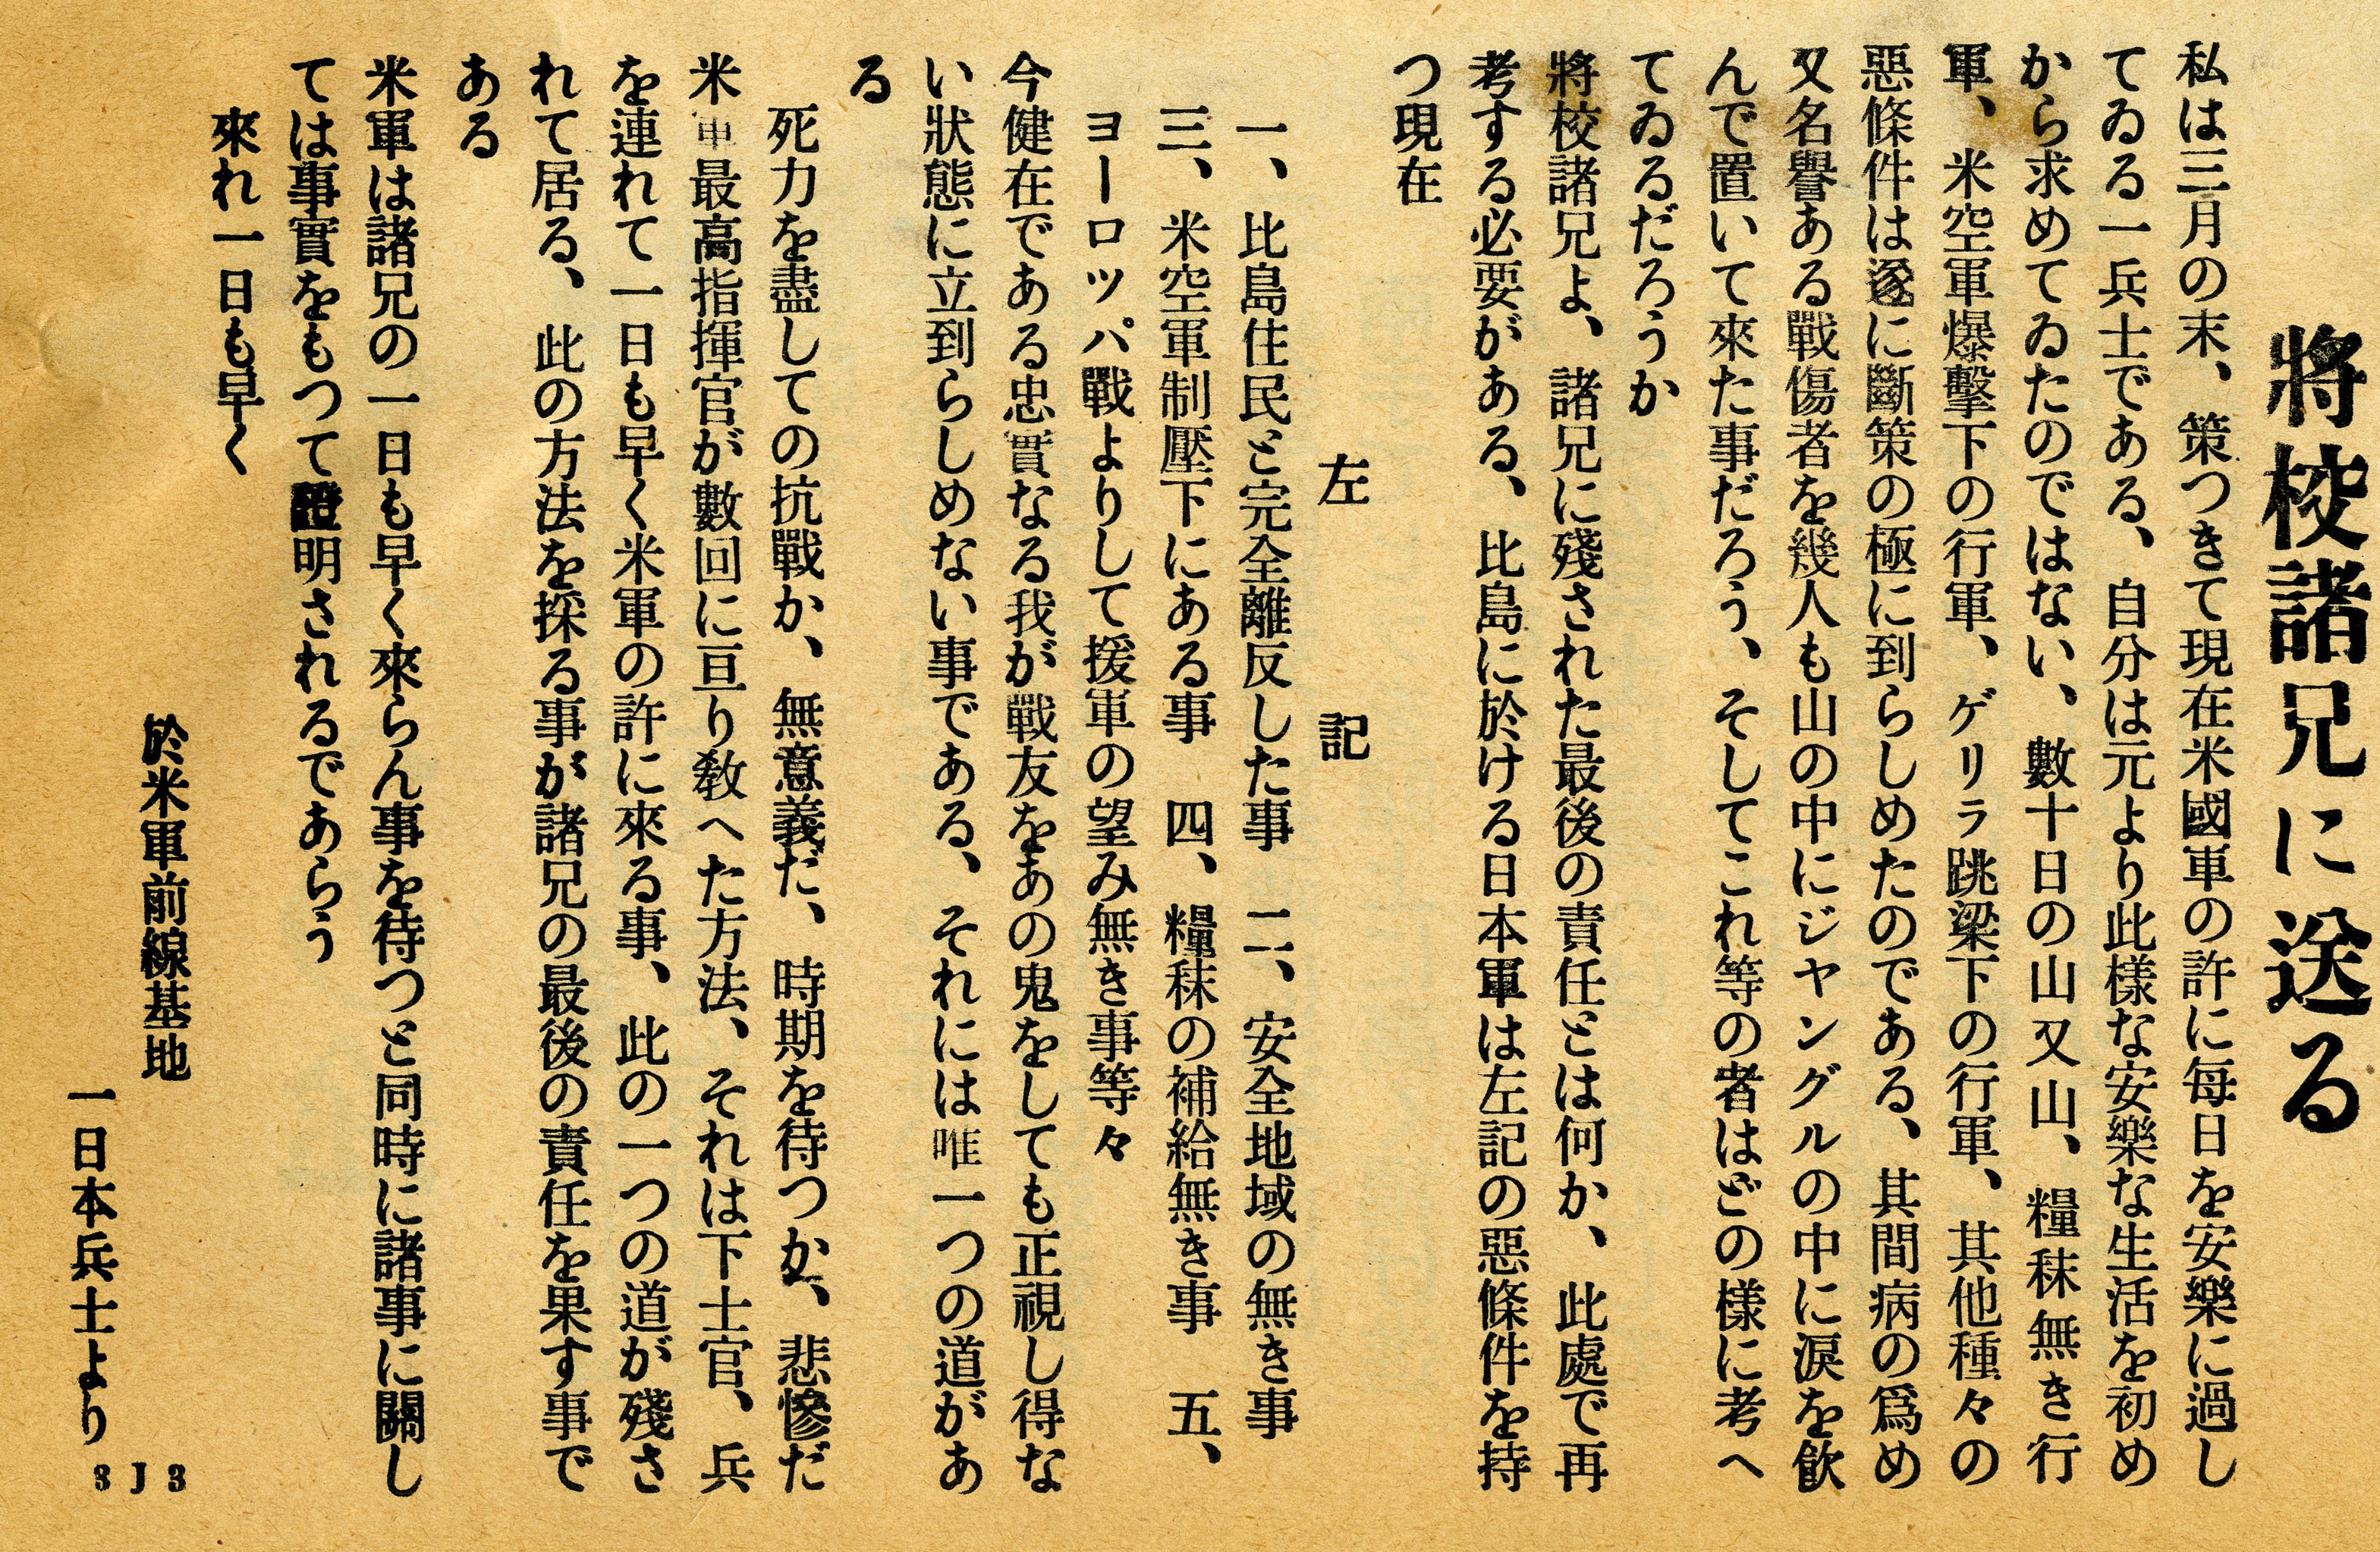 將校諸兄に送る
私は三月の末、策つきて現在米國軍の許に每日を安樂に過し
てゐる一兵士である、自分は元より此樣な安樂な生活を初め
から求めてゐたのではない、數十日の山又山、糧秣無き行
軍、米空軍爆擊下の行軍、ゲリラ跳梁下の行軍、其他種々の
惡條件は遂に斷策の極に到らしめたのである、其間病の爲め
又名譽ある戰傷者を幾人も山の中にジヤングルの中に淚を飮
んで置いて來た事だろう、そしてこれ等の者はどの樣に考へ
てゐるだろうか
將校諸兄よ、諸兄に殘された最後の責任とは何か、此處で再
考する必要がある、比島に於ける日本軍は左記の惡條件を持
つ現在
左　記
一、比島住民と完全離反した事　二、安全地域の無き事
三、米空軍制壓下にある事　四、糧秣の補給無き事　五、
ヨーロツパ戰よりして援軍の望み無き事等々
今健在である忠實なる我が戰友をあの鬼をしても正視し得な
い狀態に立到らしめない事である、それには唯一つの道があ
る
死力を盡しての抗戰か、無意義だ、時期を待つか、悲慘だ
米軍最高指揮官が數回に亘り敎へた方法、それは下士官、兵
を連れて一日も早く米軍の許に來る事、此の一つの道が殘さ
れて居る、此の方法を採る事が諸兄の最後の責任を果す事で
ある
米軍は諸兄の一日も早く來らん事を待つと同時に諸事に關し
ては事實をもつて證明されるであらう
來れ一日も早く
於米軍前線基地
一日本兵士より
3J3